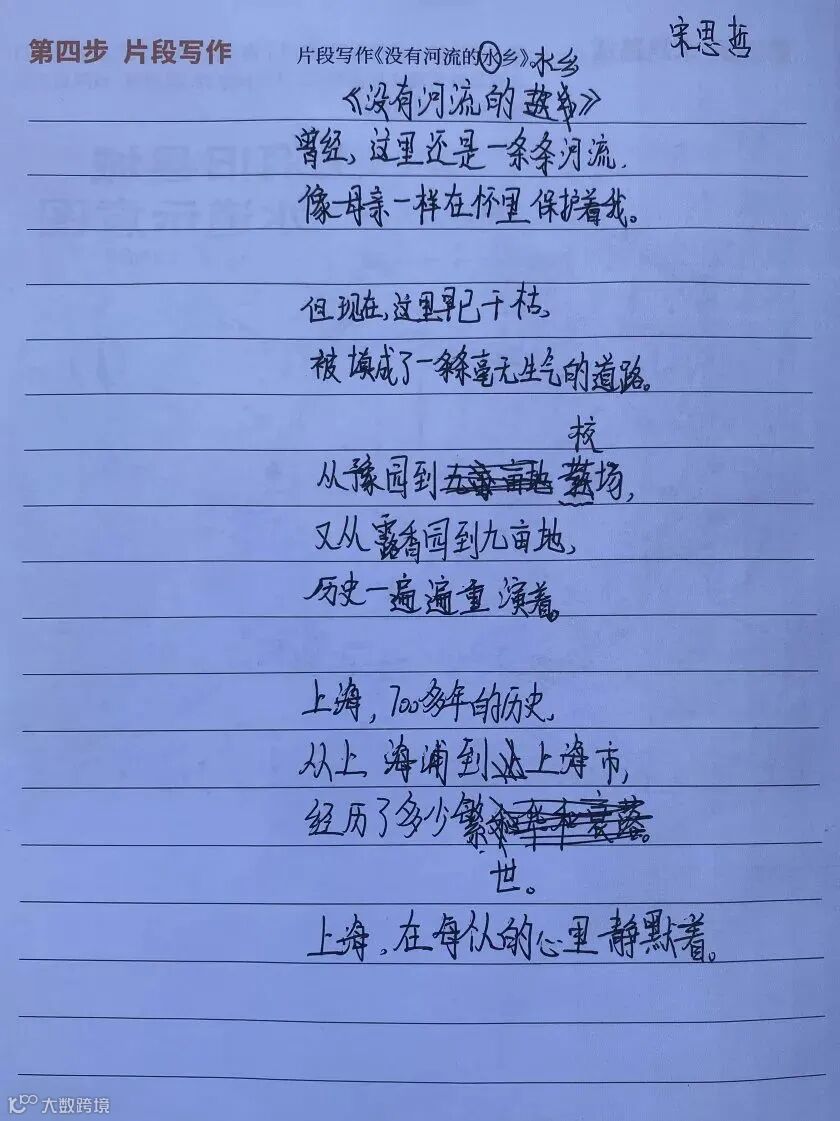 第四步 片段写作
片段写作《没有河流的水乡》。
宋思哲
水乡
《没有河流的》
曾经，这里还是一条条河流，
像母亲一样在怀里保护着我。
但现在，这里早已干枯，
被填成了一条条毫无生气的道路。
校
从豫园到场，
又从露香园到九亩地，
历史一遍遍重演着。
上海，700多年的历史，
从上海浦到上海市，
经历了多少繁
世。
上海，在每个人的心里静默着。
大数跨境